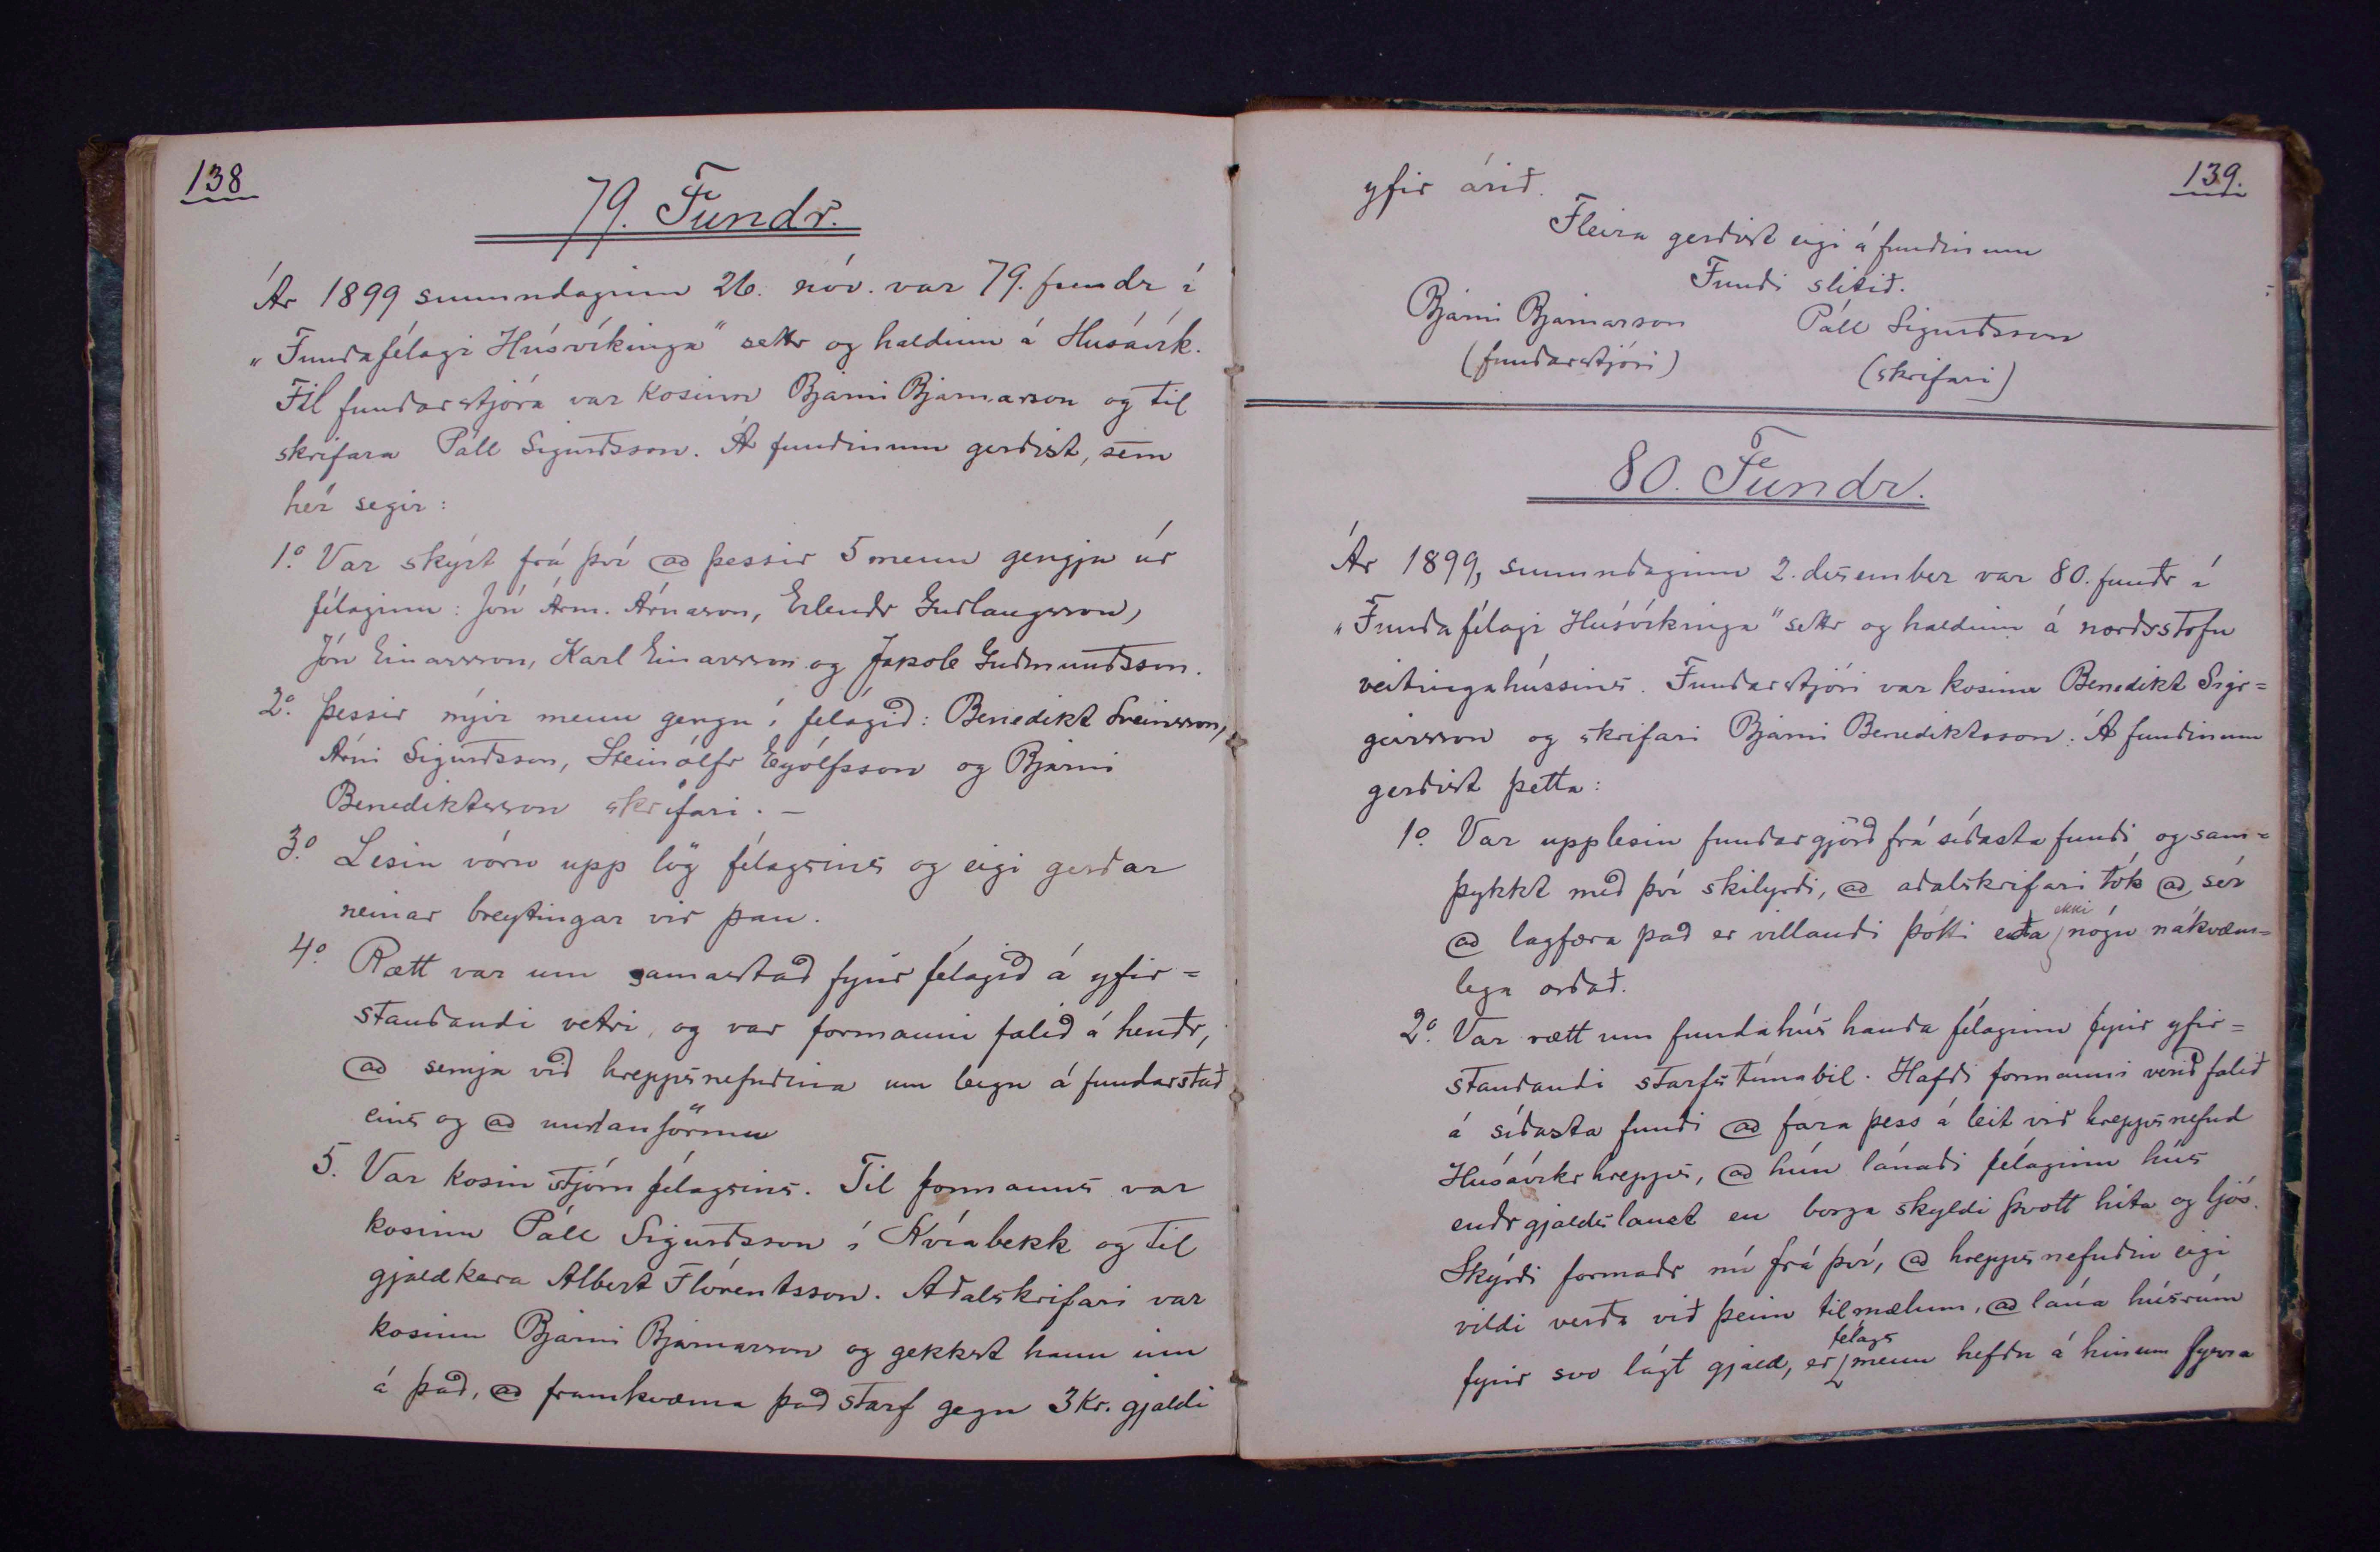 138
79. Fundr.
Ár 1899 sunnudaginn 26. nóv. var 79. fundr í
„Fundafélagi Húsvíkinga" settr og haldinn á Húsavík.
Til fundarstjóra var kosinn Bjarni Bjarnarson og til
skrifara Páll Sigurðsson. Á fundinum gerðist, sem
hér segir:
1.o Var skýrt frá því að þessir 5 menn gengju úr
félaginu: Jón Árm. Árnason, Erlendr Guðlaugsson,
Jón Einarsson, Karl Einarsson og Jakob Guðmundsson.
2.o Þessir nýir menn gengu í félagið: Benedikt Sveinsson,
Árni Sigurðsson, Steinólfr Eyólfsson og Bjarni
Benediktsson skrifari. –
3.o Lesin vóru upp lög félagsins og eigi gerðar
neinar breytingar við þau.
4.o Rætt var um samastað fyrir félagið á yfir=
standandi vetri, og var formanni falið á hendr,
að semja við hreppsnefndina um leigu á fundarstað
eins og að undanförnu
5. Var kosin stjórn félagsins. Til formanns var
kosinn Páll Sigurðsson í Kvíabekk og til
gjaldkera Albert Flórentsson. Aðalskrifari var
kosinn Bjarni Bjarnarson og gekkst hann inn
á það, að framkvæma það starf gegn 3 Kr. gjaldi
139.
yfir árið.
Fleira gerðist eigi á fundinum
Fundi slitið.
Bjarni Bjarnarson Páll Sigurðsson
(fundarstjóri) (skrifari)
80. Fundr.
Ár 1899, sunnudaginn 2. desember var 80. fundr í
„Fundafélagi Húsvíkinga" settr og haldinn á norðrstofu
veitingahússins. Fundarstjóri var kosinn Benedikt Sigr=
geirsson og skrifari Bjarni Benediktsson. Á fundinum
gerðist þetta:
1.o Var upplesin fundargjörð frá síðasta fundi og sam=
þykkt með því skilyrði, að aðalskrifari tók að sér
að lagfæra það er villandi þótti eða ekki nógu nákvæm=
lega orðað.
2.o Var rætt um fundahús handa félaginu fyrir yfir=
standandi starfstímabil. Hafði formanni verið falið
á síðasta fundi að fara þess á leit við hreppsnefnd
Húsavíkrhrepps, að hún lánaði félaginu hús
endrgjaldslaust en borga skyldi þvott hita og ljós.
Skýrði formaðr nú frá því, að hreppsnefndin eigi
vildi verða við þeim tilmælum, að lána húsrúm
fyrir svo lágt gjald, er félagsmenn hefðu á hinum fyrra